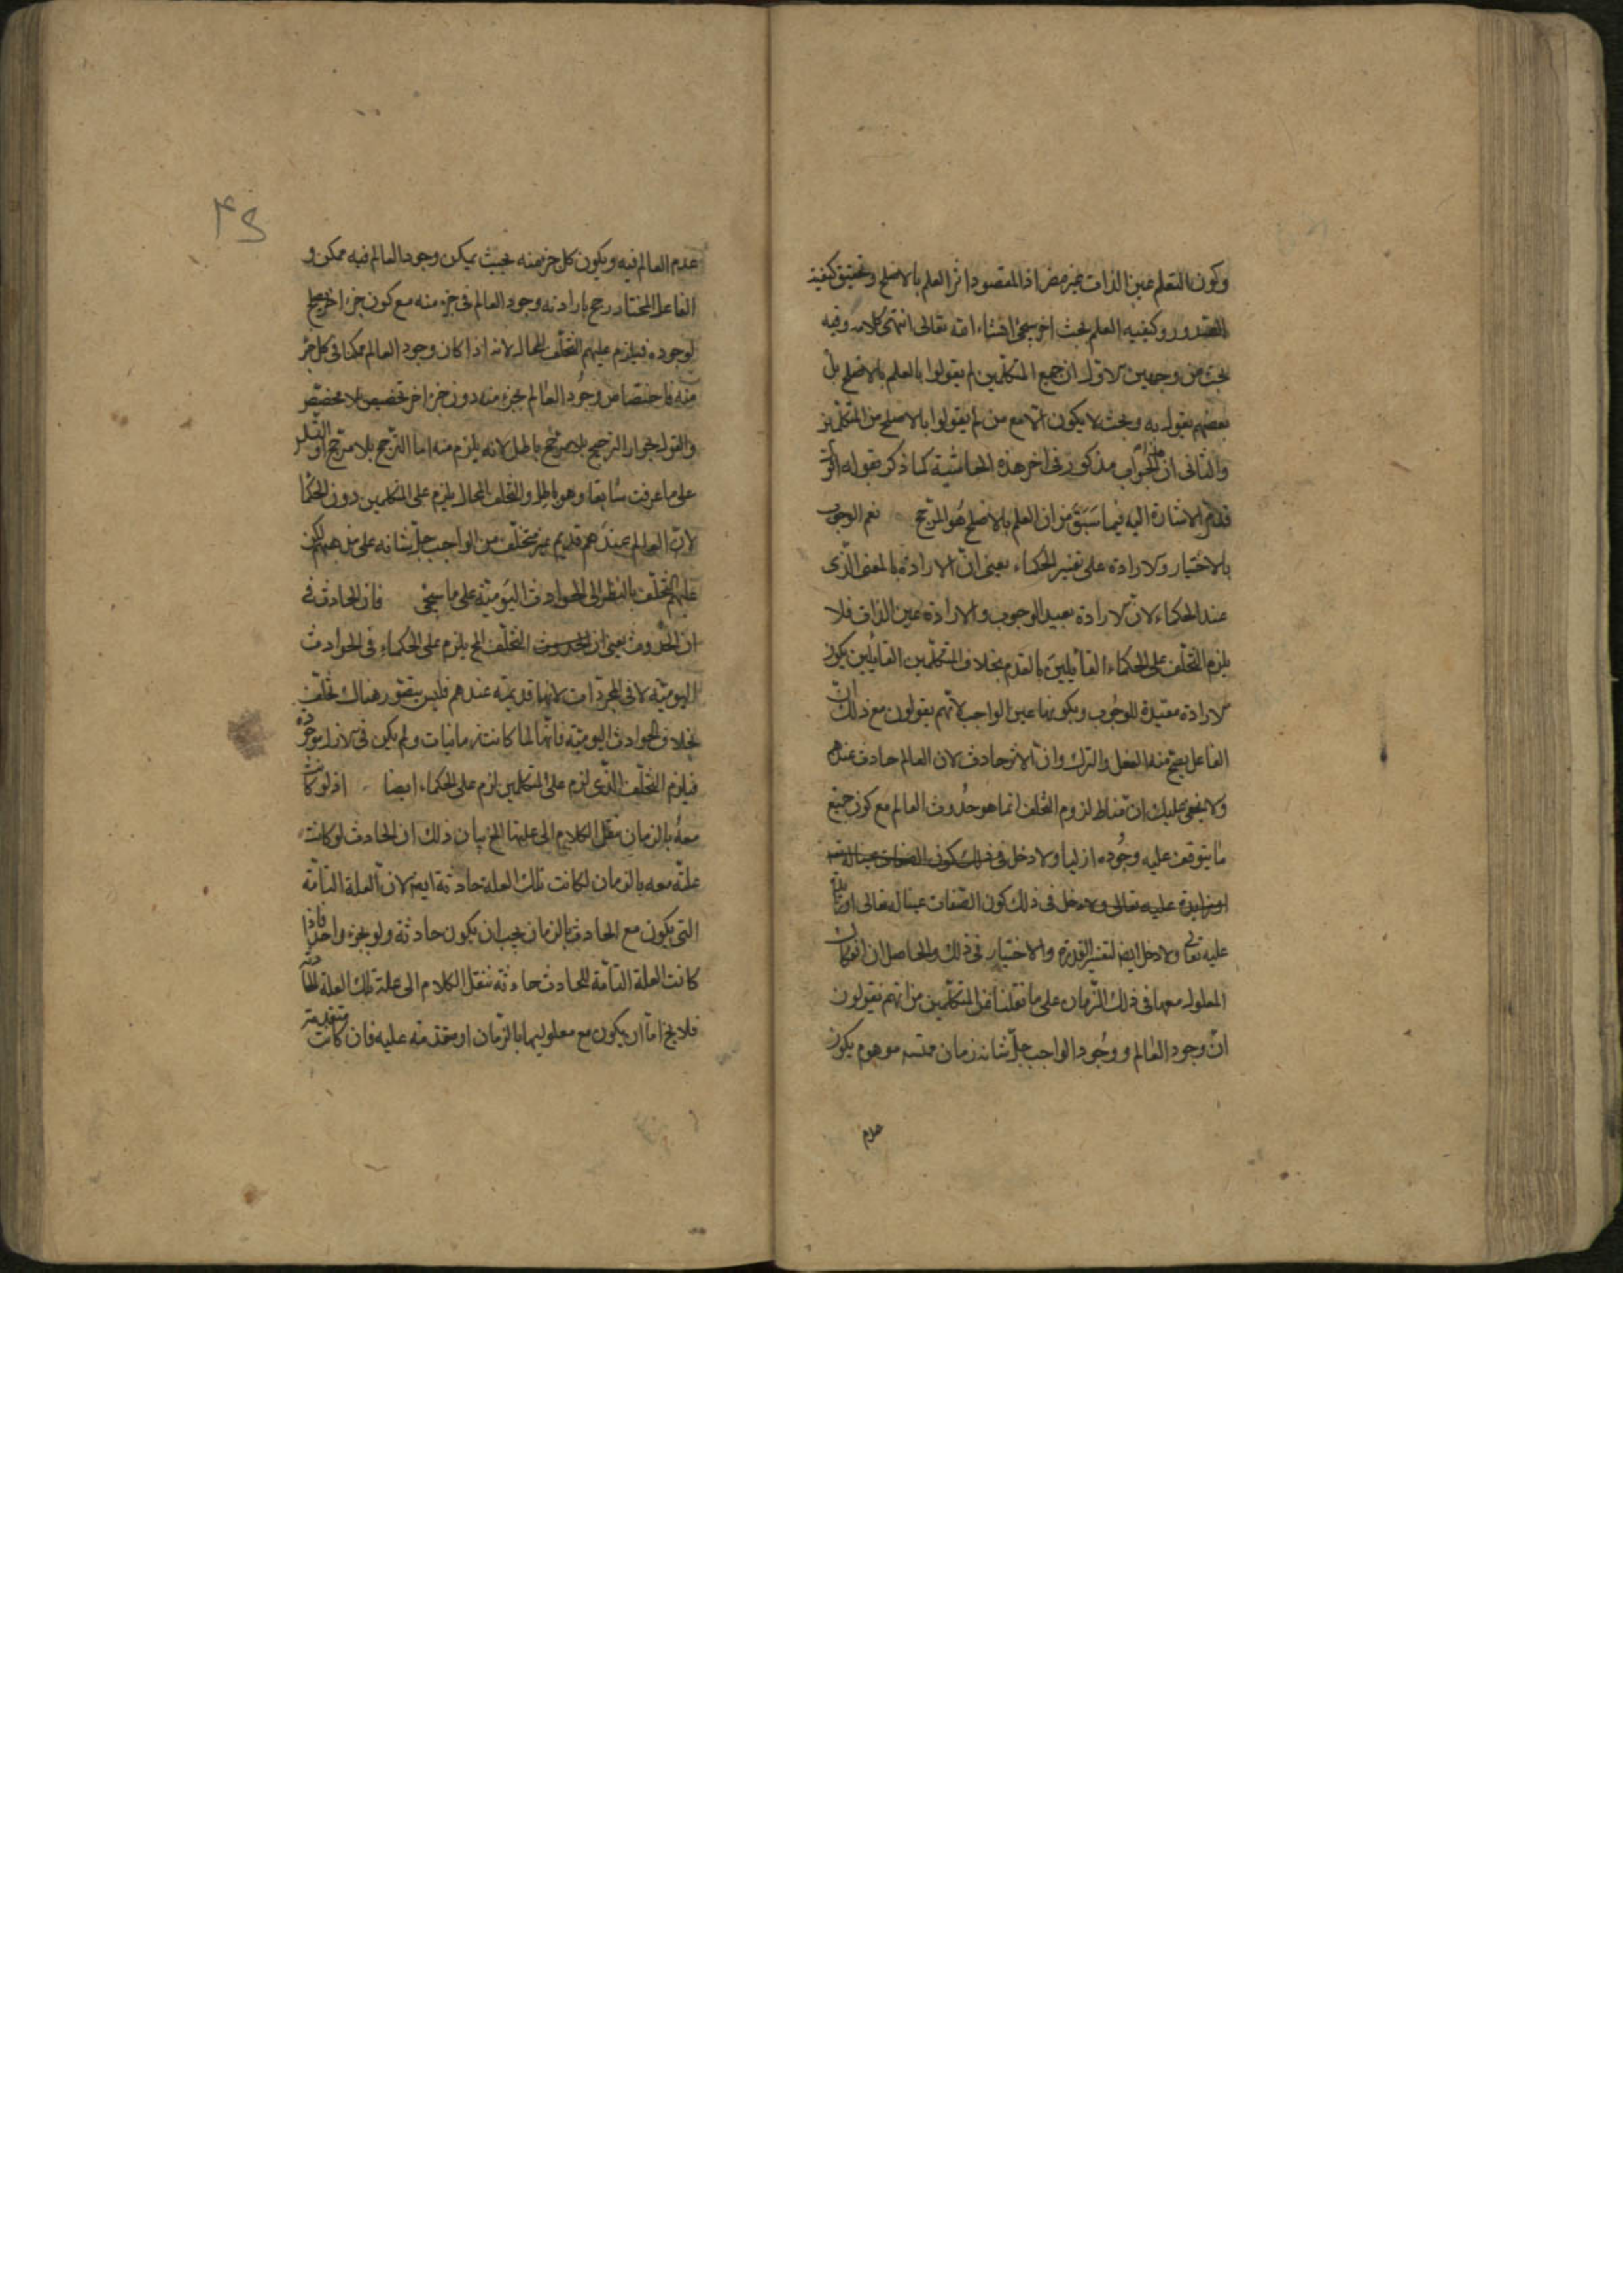 وكون التعلم عين الذات غير مضر اذ المقصود اثر العلم بالاصلح وتحقيق كيفية
الصدور وكيفيه العلم بحث اخر سيجئ انشاء الله تعالى انتهى كلامه وفيه
بحث من وجهين الاول ان جميع المتكلمين لم يقولوا بالعلم بالاصلح بل
بعضهم يقول به وبحث لا يكون الا مع من لم يقولوا بالاصلح من المتكلمين
والثانى ان الجواب مذكور فى اخر هذه الحاشية كما ذكر بقوله
قدم الاشارة اليه فيما سبق من ان العلم بالاصلح هو المرجح نعم الوجوب
بالاختيار والارادة على تفسير الحكماء يعنى ان الارادة بالمعنى الذى
عند الحكماء لان الارادة بعيد الوجوب والارادة عين الذات فلا
يلزم التخلف على الحكماء القائلين بالقدم بخلاف المتكلمين القايلين بكون
الارادة مفيدة للوجوب وبكونها عين الواجب لانهم يقولون مع ذلك ان
الفاعل يصح منه الفعل والترك وان الاثر حادث لان العالم حادث عندهم
ولا يخفى عليك ان مناط لزوم التخلف انما هو حدوث العالم مع كون جميع
ما يتوقف عليه وجوده ازليا ولا دخل فى ذلك كون الصفات عينا له تعالى
او زايدة عليه تعالى ولا دخل فى ذلك كون الصفات عينا له تعالى او زايدة
عليه تعالى ولا دخل ايضا لتفسير القدرة والاختيار فى ذلك والحاصل ان انفكاك
المعلول معها فى ذلك الزمان على ما نقلنا عن المتكلمين من انهم يقولون
ان وجود العالم ووجود الواجب جل شانه زمان موهوم يكون
عدم
عدم العالم فيه ويكون كل جزء منه بحيث يمكن وجود العالم فيه ممكن و
الفاعل المختار رجح بارادته وجود العالم فى جزء منه مع كون جزء اخر يصلح
لوجوده فيلزم عليهم التخلف المحال لانه اذا كان وجود العالم ممكنا فى كل جزء
منه فاختصاص وجود العالم بجزء منه دون جزء اخر تخصيص بلا مخصص
والقول بجواز الترجيح بلا مرجح باطل لانه يلزم منه اما الترجح بلا مرجح او التسلسل
على ما عرفت سابقا وهو باطل والتخلف المحال يلزم على المتكلمين دون الحكما
لان العالم عندهم قديم غير متخلف من الواجب جل شانه على مذهبهم لكن
عليهم التخلف بالنظر الى الحوادث اليومية على ما سيجئ فان الحادث فى
ان الحدوث يعنى ان الحدوث التخلف المح يلزم على الحكماء فى الحوادث
اليومية لا فى المجردات لانها قديمة عندهم فليس يتصور هناك تخلف
بخلاف الحوادث اليومية فانها لما كانت زمانيات ولم يكن فى الازل موجودة
فيلزم التخلف الذى لزم على المتكلمين لزم على الحكماء ايضا اذ لو كانت
معه بالزمان ننقل الكلام الى علتها الخ بيان ذلك ان الحادث لو كانت
علته معه بالزمان لكانت تلك العلة حادثة ايضا لان العلة التامة
التى يكون مع الحادث بالزمان يجب ان يكون حادثة ولو بجزء واحد فاذا
كانت العلة التامة للحادث حادثة ننقل الكلام الى علة تلك العلة الحادثة
فلا يخ اما ان يكون مع معلوليها بالزمان او متقدمة عليه فان كانت متقدمة